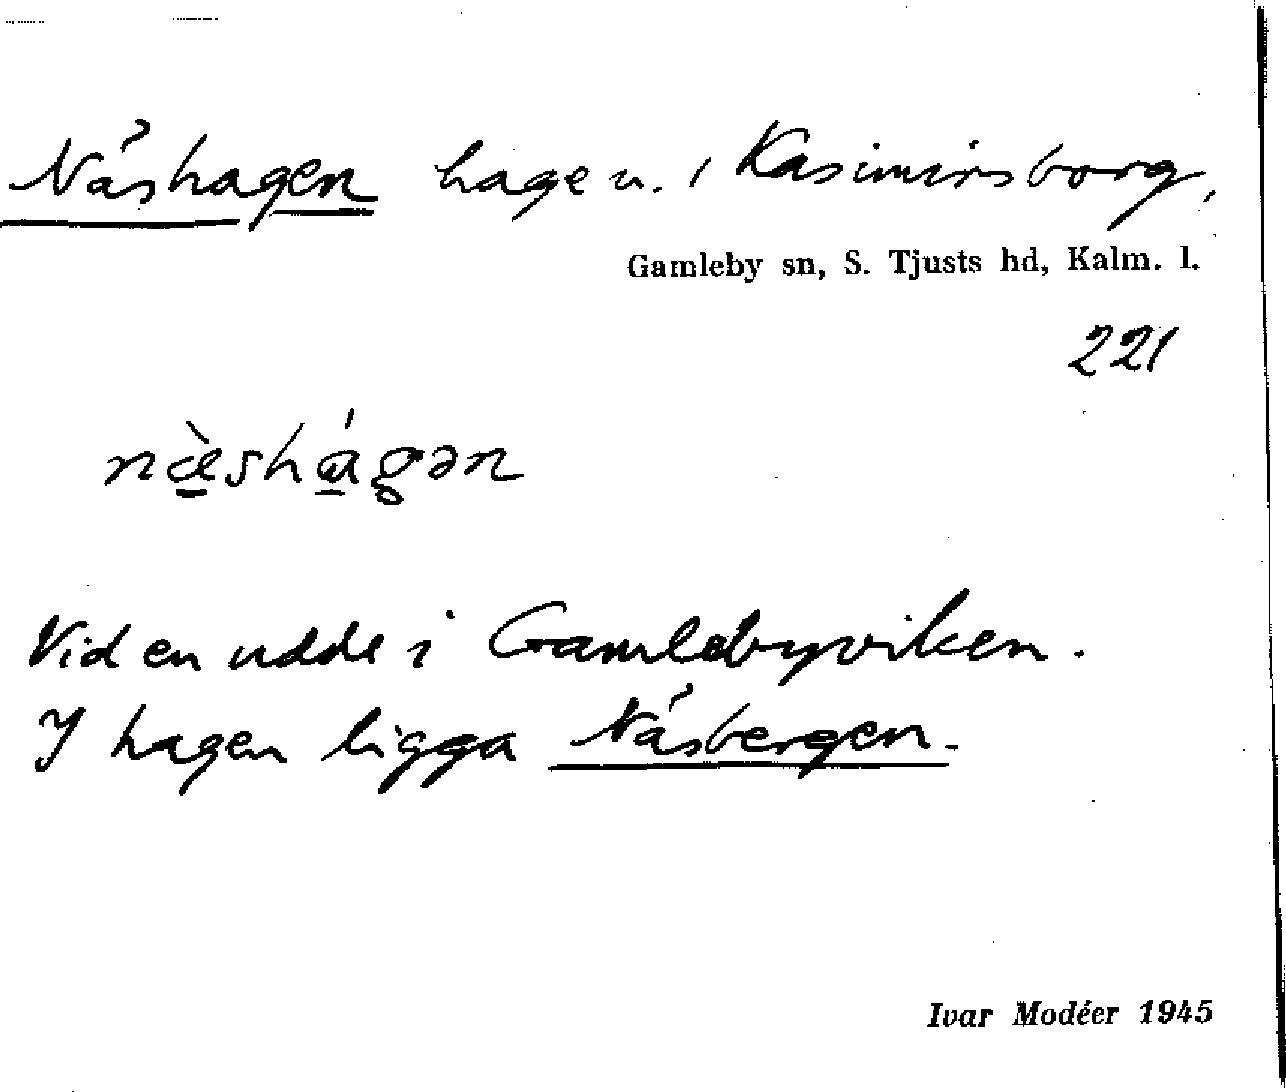 Näshagen hage u. 1 Kasimirsborg,
Gamleby sn, S. Tjusts hd, Kalm. l.
221
næ̀shágən
Vid en udde i Gamlebyviken.
I hagen ligga Näsbergen.
Ivar Modéer 1945